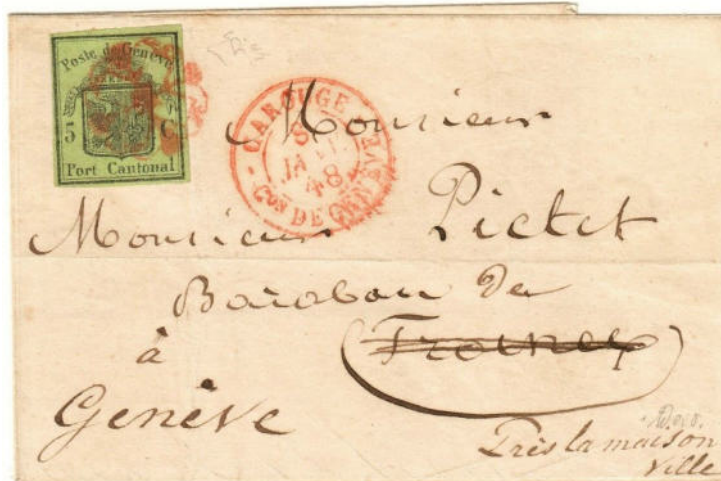 Poste de Genève
5 C.
Port Cantonal
CAROUGE
8
JANV.
48
Cᵒⁿ DE GENÈVE
Monsieur
Monsieur Pictet
de
à
Genève
Près la maison
Ville